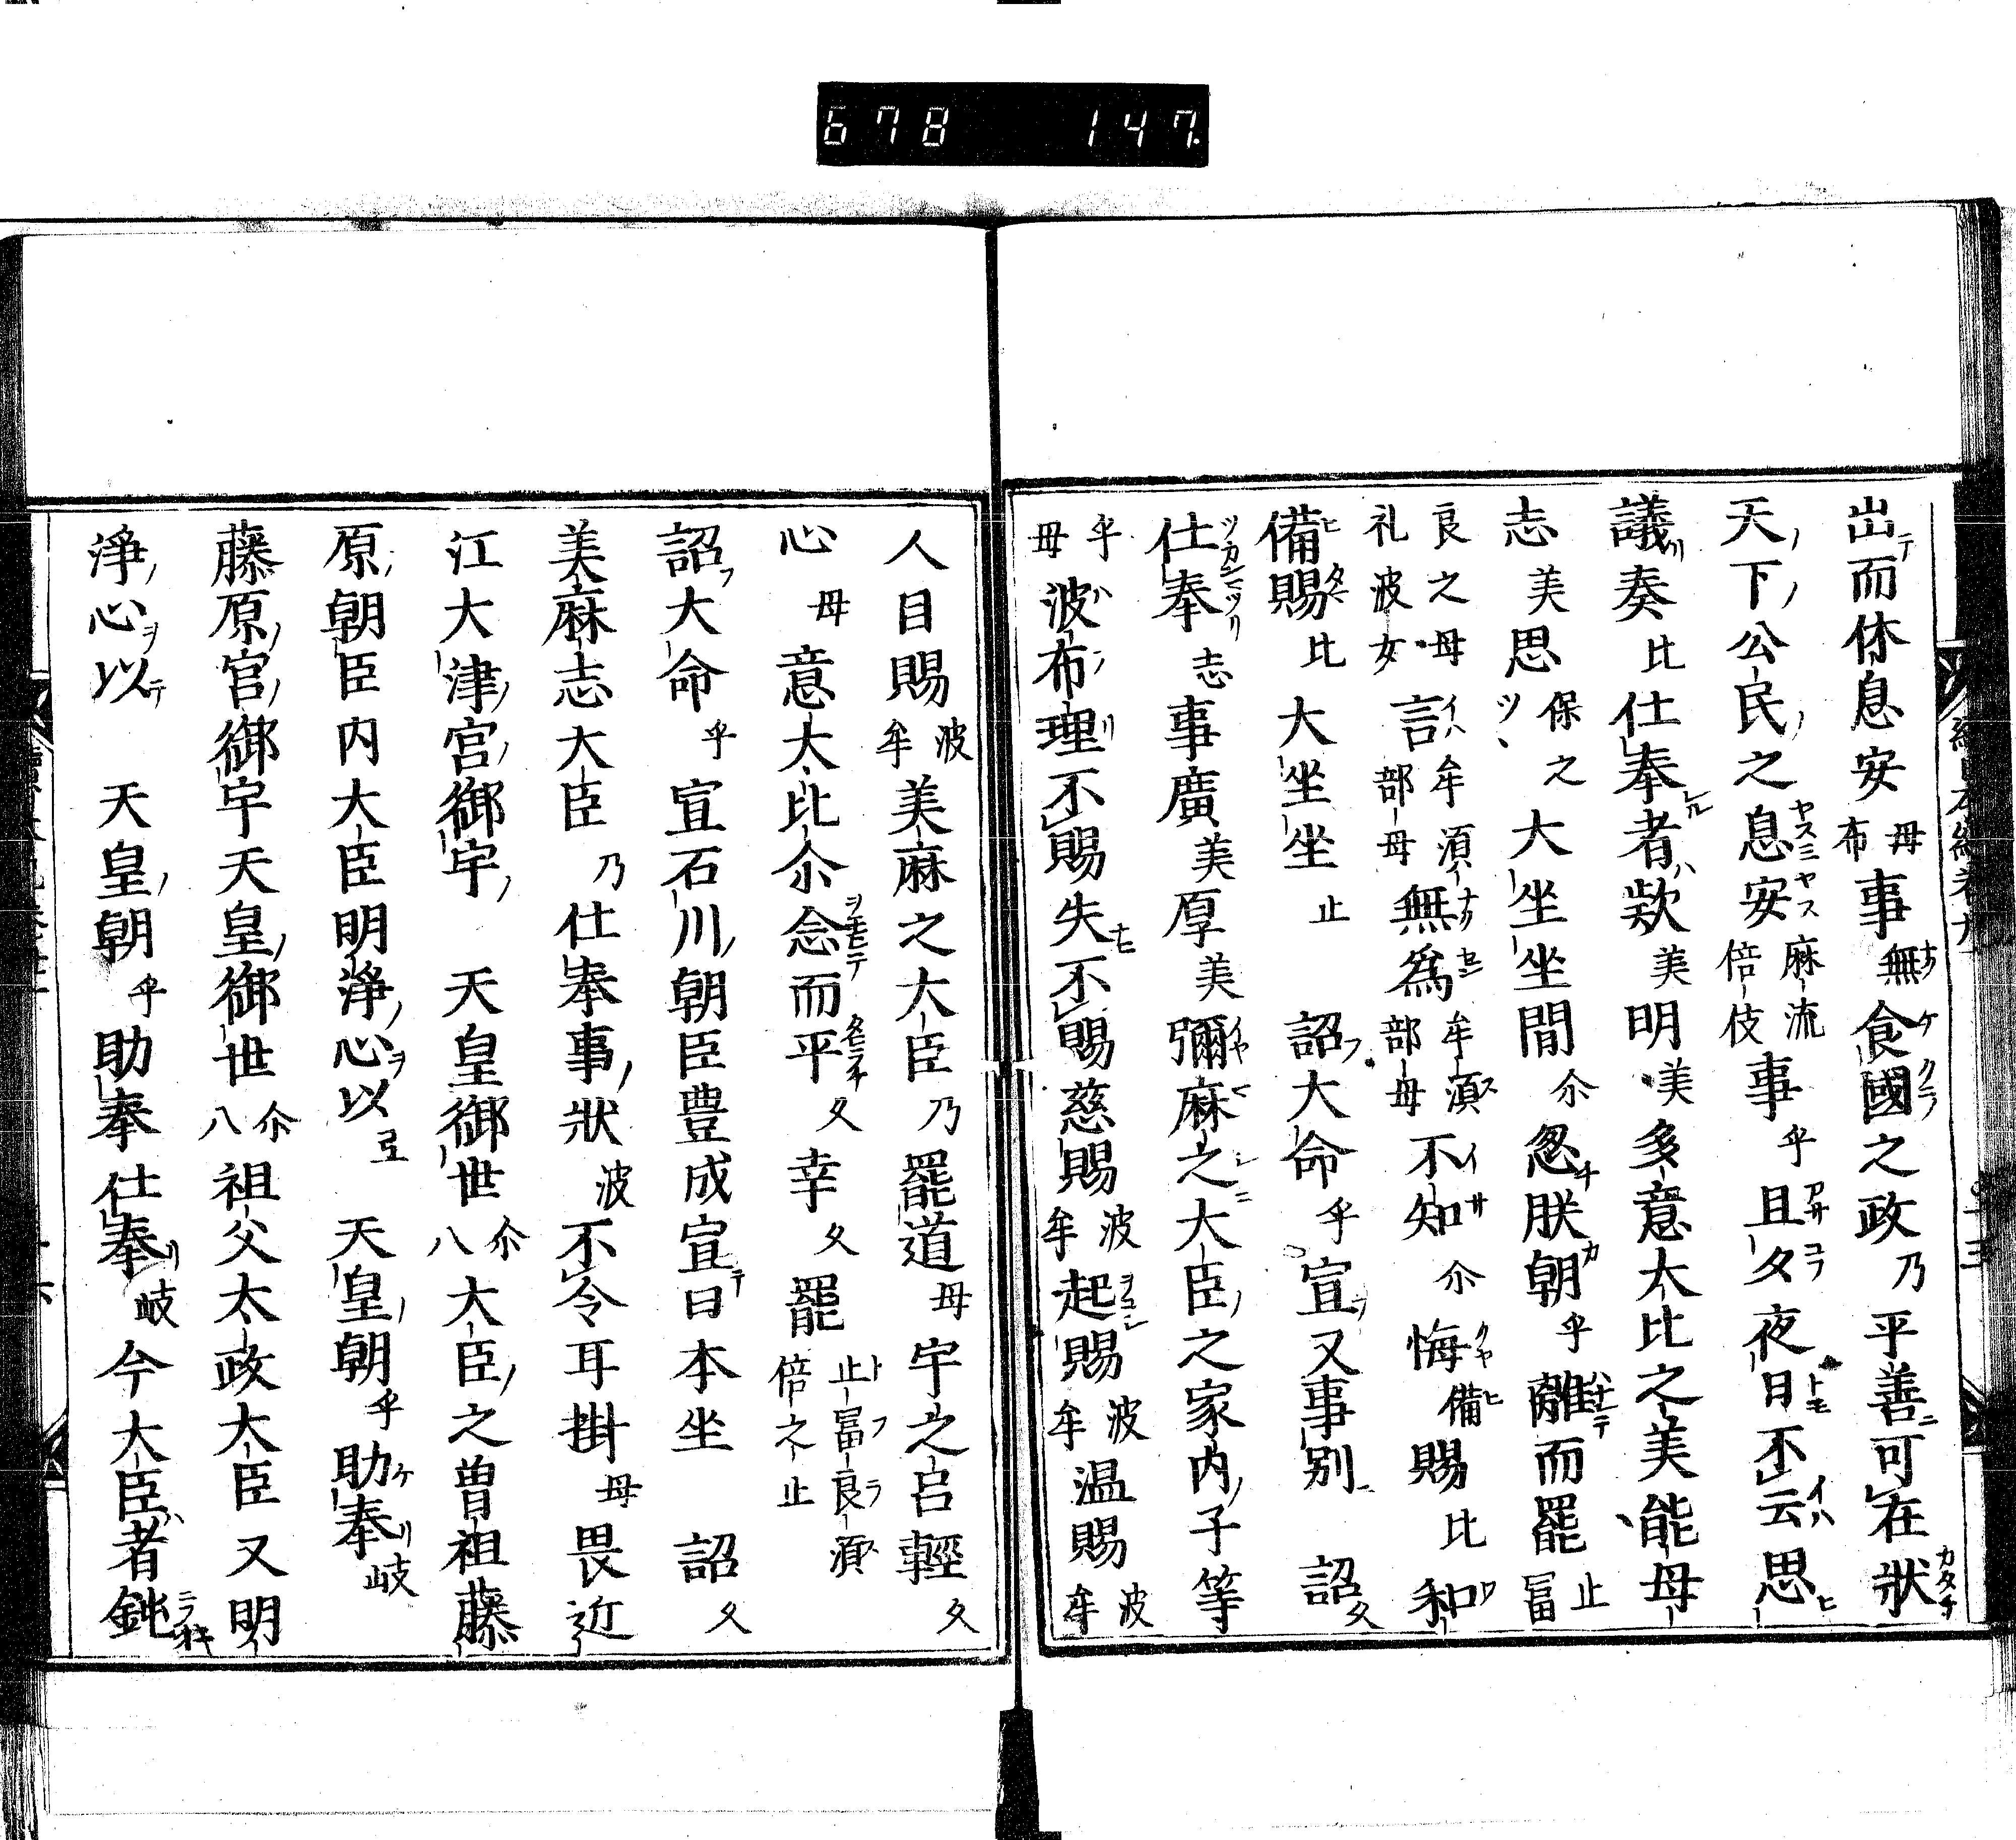 678 147
出而休息安母布事無食國之政乃平善可在狀
天下公民之息安麻流倍伎事乎且夕夜日不云思
議奏比仕奉者欵美明美多意太比之美能母
志美思保之ツヽ大坐坐間尒忽朕朝乎離而罷止冨
良之母礼波女言牟湏部母無爲牟湏部母不知尒悔備賜比和
備賜比大坐坐止 詔大命乎宣又事別 詔久
仕奉志事廣美厚美彌麻之大臣之家内子等
乎母波布理不賜失不賜慈賜波牟起賜波牟温賜波牟
人目賜波牟美麻之大臣乃罷道母宇之呂輕久
心母意太比尒念而平久幸久罷止冨良湏倍之止
詔大命乎宣石川朝臣豊成宣曰本坐 詔久
美麻志大臣乃仕奉事狀波不令耳掛母畏近
江大津宮御宇 天皇御世尒八大臣之曽祖藤
原朝臣内大臣明淨心以弖 天皇朝乎助奉岐
藤原宮御宇天皇御世尒八祖父太政大臣又明
淨心以 天皇朝乎助奉仕奉岐今大臣者鈍